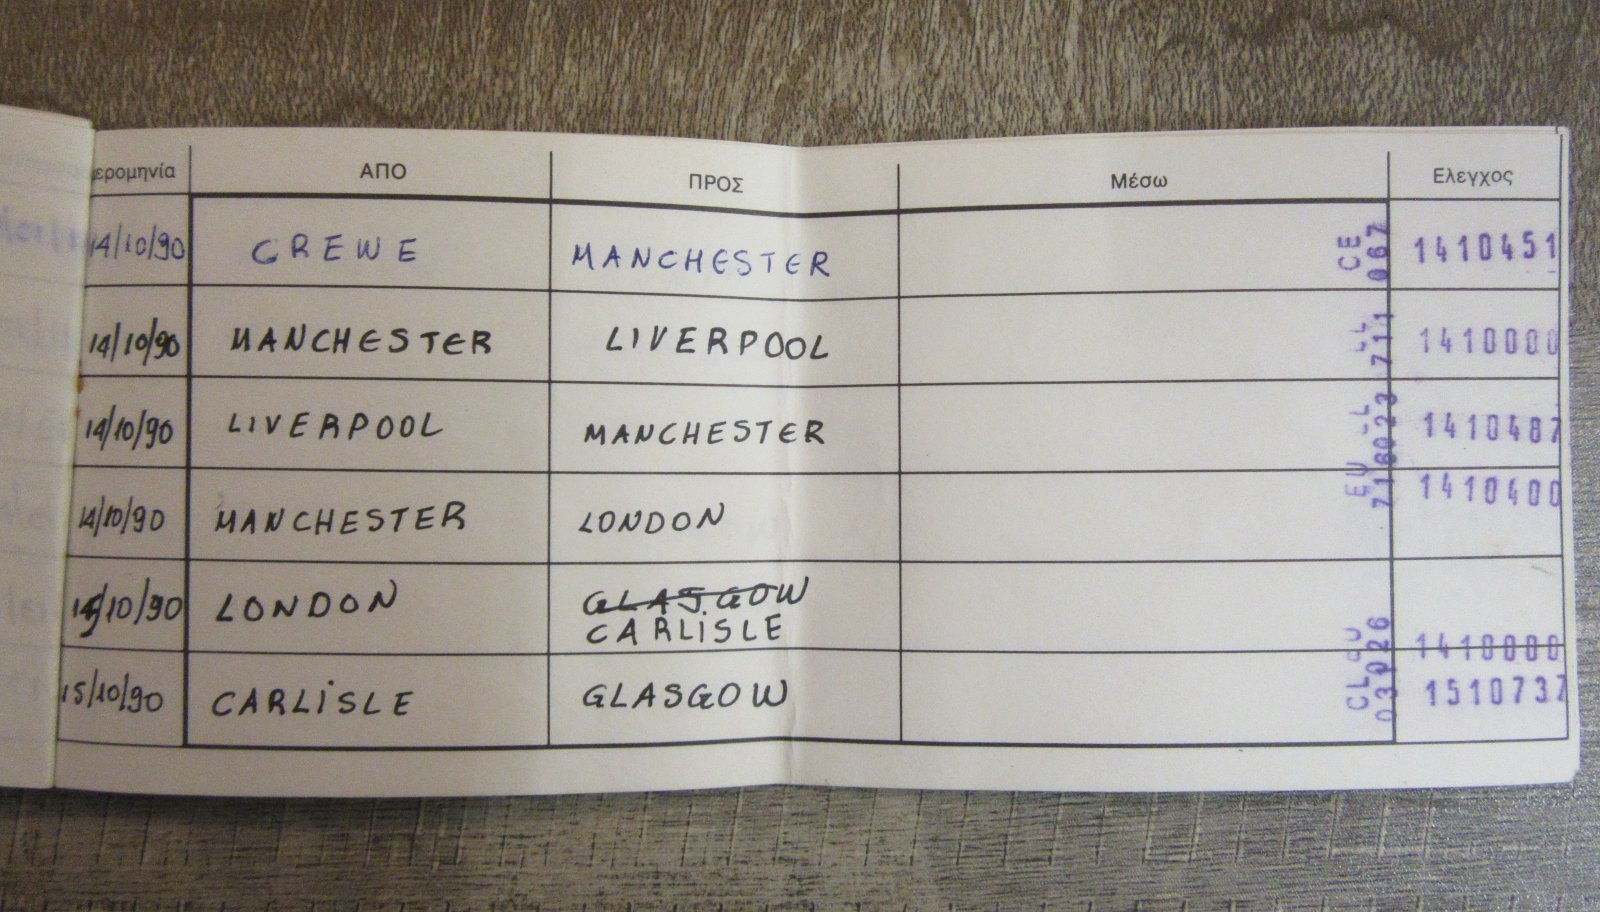 ερομηνία ΑΠΟ ΠΡΟΣ Μέσω Ελεγχος
14/10/90 CREWE MANCHESTER CE 067 1410451
14/10/90 MANCHESTER LIVERPOOL 711 1410000
14/10/90 LIVERPOOL MANCHESTER 6023 1410487
14/10/90 MANCHESTER LONDON EU 716 1410400
15/10/90 LONDON GLASGOW
CARLISLE 026 1410000
15/10/90 CARLISLE GLASGOW CL 039 1510737